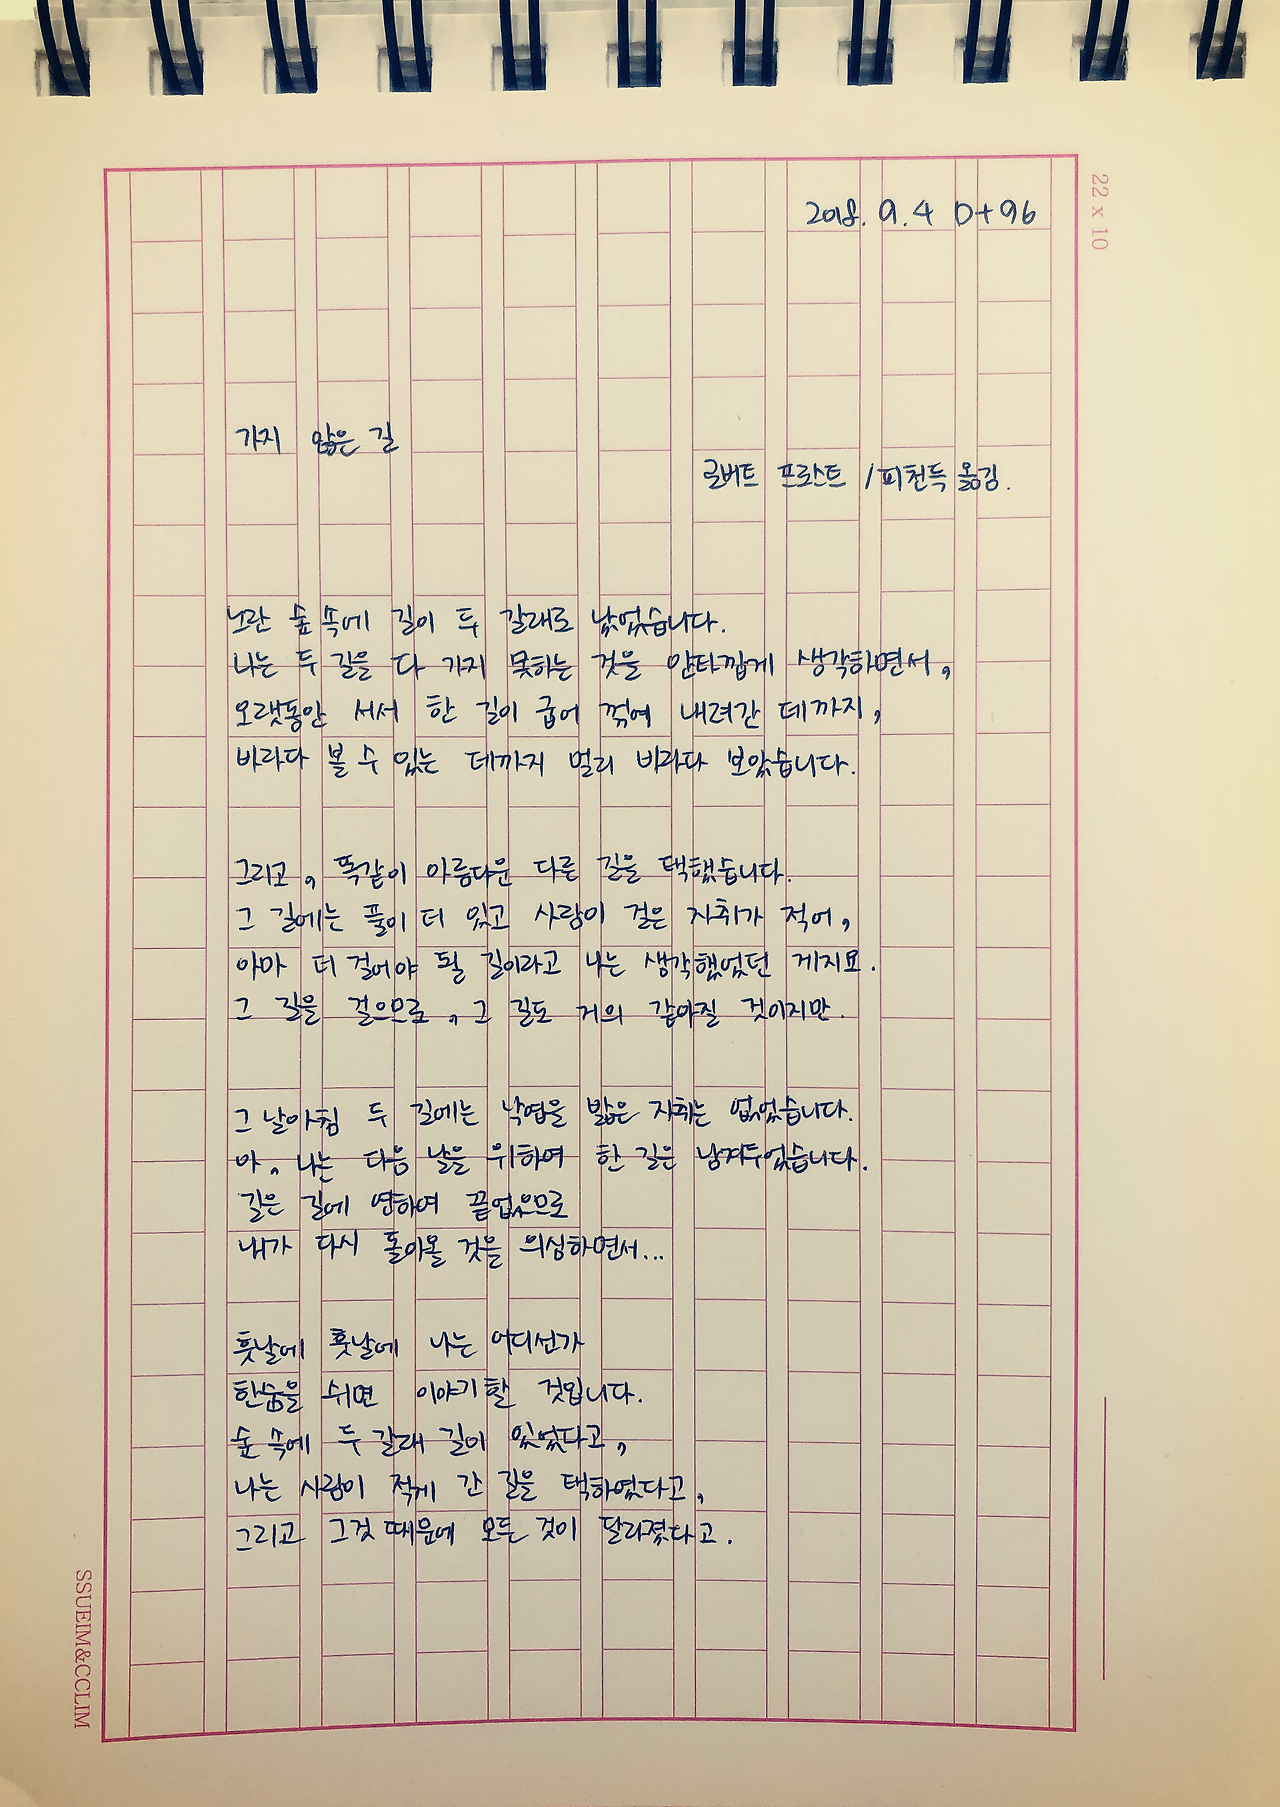 22 x 10
2018. 9. 4 D+96
가지 않은 길
로버트 프로스트 / 피천득 옮김.
노란 숲 속에 길이 두 갈래로 났었습니다.
나는 두 길을 다 가지 못하는 것을 안타깝게 생각하면서,
오랫동안 서서 한 길이 굽어 꺾여 내려간 데까지,
바라다 볼 수 있는 데까지 멀리 바라다 보았습니다.
그리고, 똑같이 아름다운 다른 길을 택했습니다.
그 길에는 풀이 더 있고 사람이 걸은 자취가 적어,
아마 더 걸어야 될 길이라고 나는 생각했었던 게지요.
그 길을 걸으므로, 그 길도 거의 같아질 것이지만.
그 날 아침 두 길에는 낙엽을 밟은 자취는 없었습니다.
아, 나는 다음 날을 위하여 한 길은 남겨두었습니다.
길은 길에 연하여 끝없으므로
내가 다시 돌아올 것을 의심하면서...
훗날에 훗날에 나는 어디선가
한숨을 쉬면 이야기할 것입니다.
숲 속에 두 갈래 길이 있었다고,
나는 사람이 적게 간 길을 택하였다고,
그리고 그것 때문에 모든 것이 달라졌다고.
SSUEIM&CCLIM